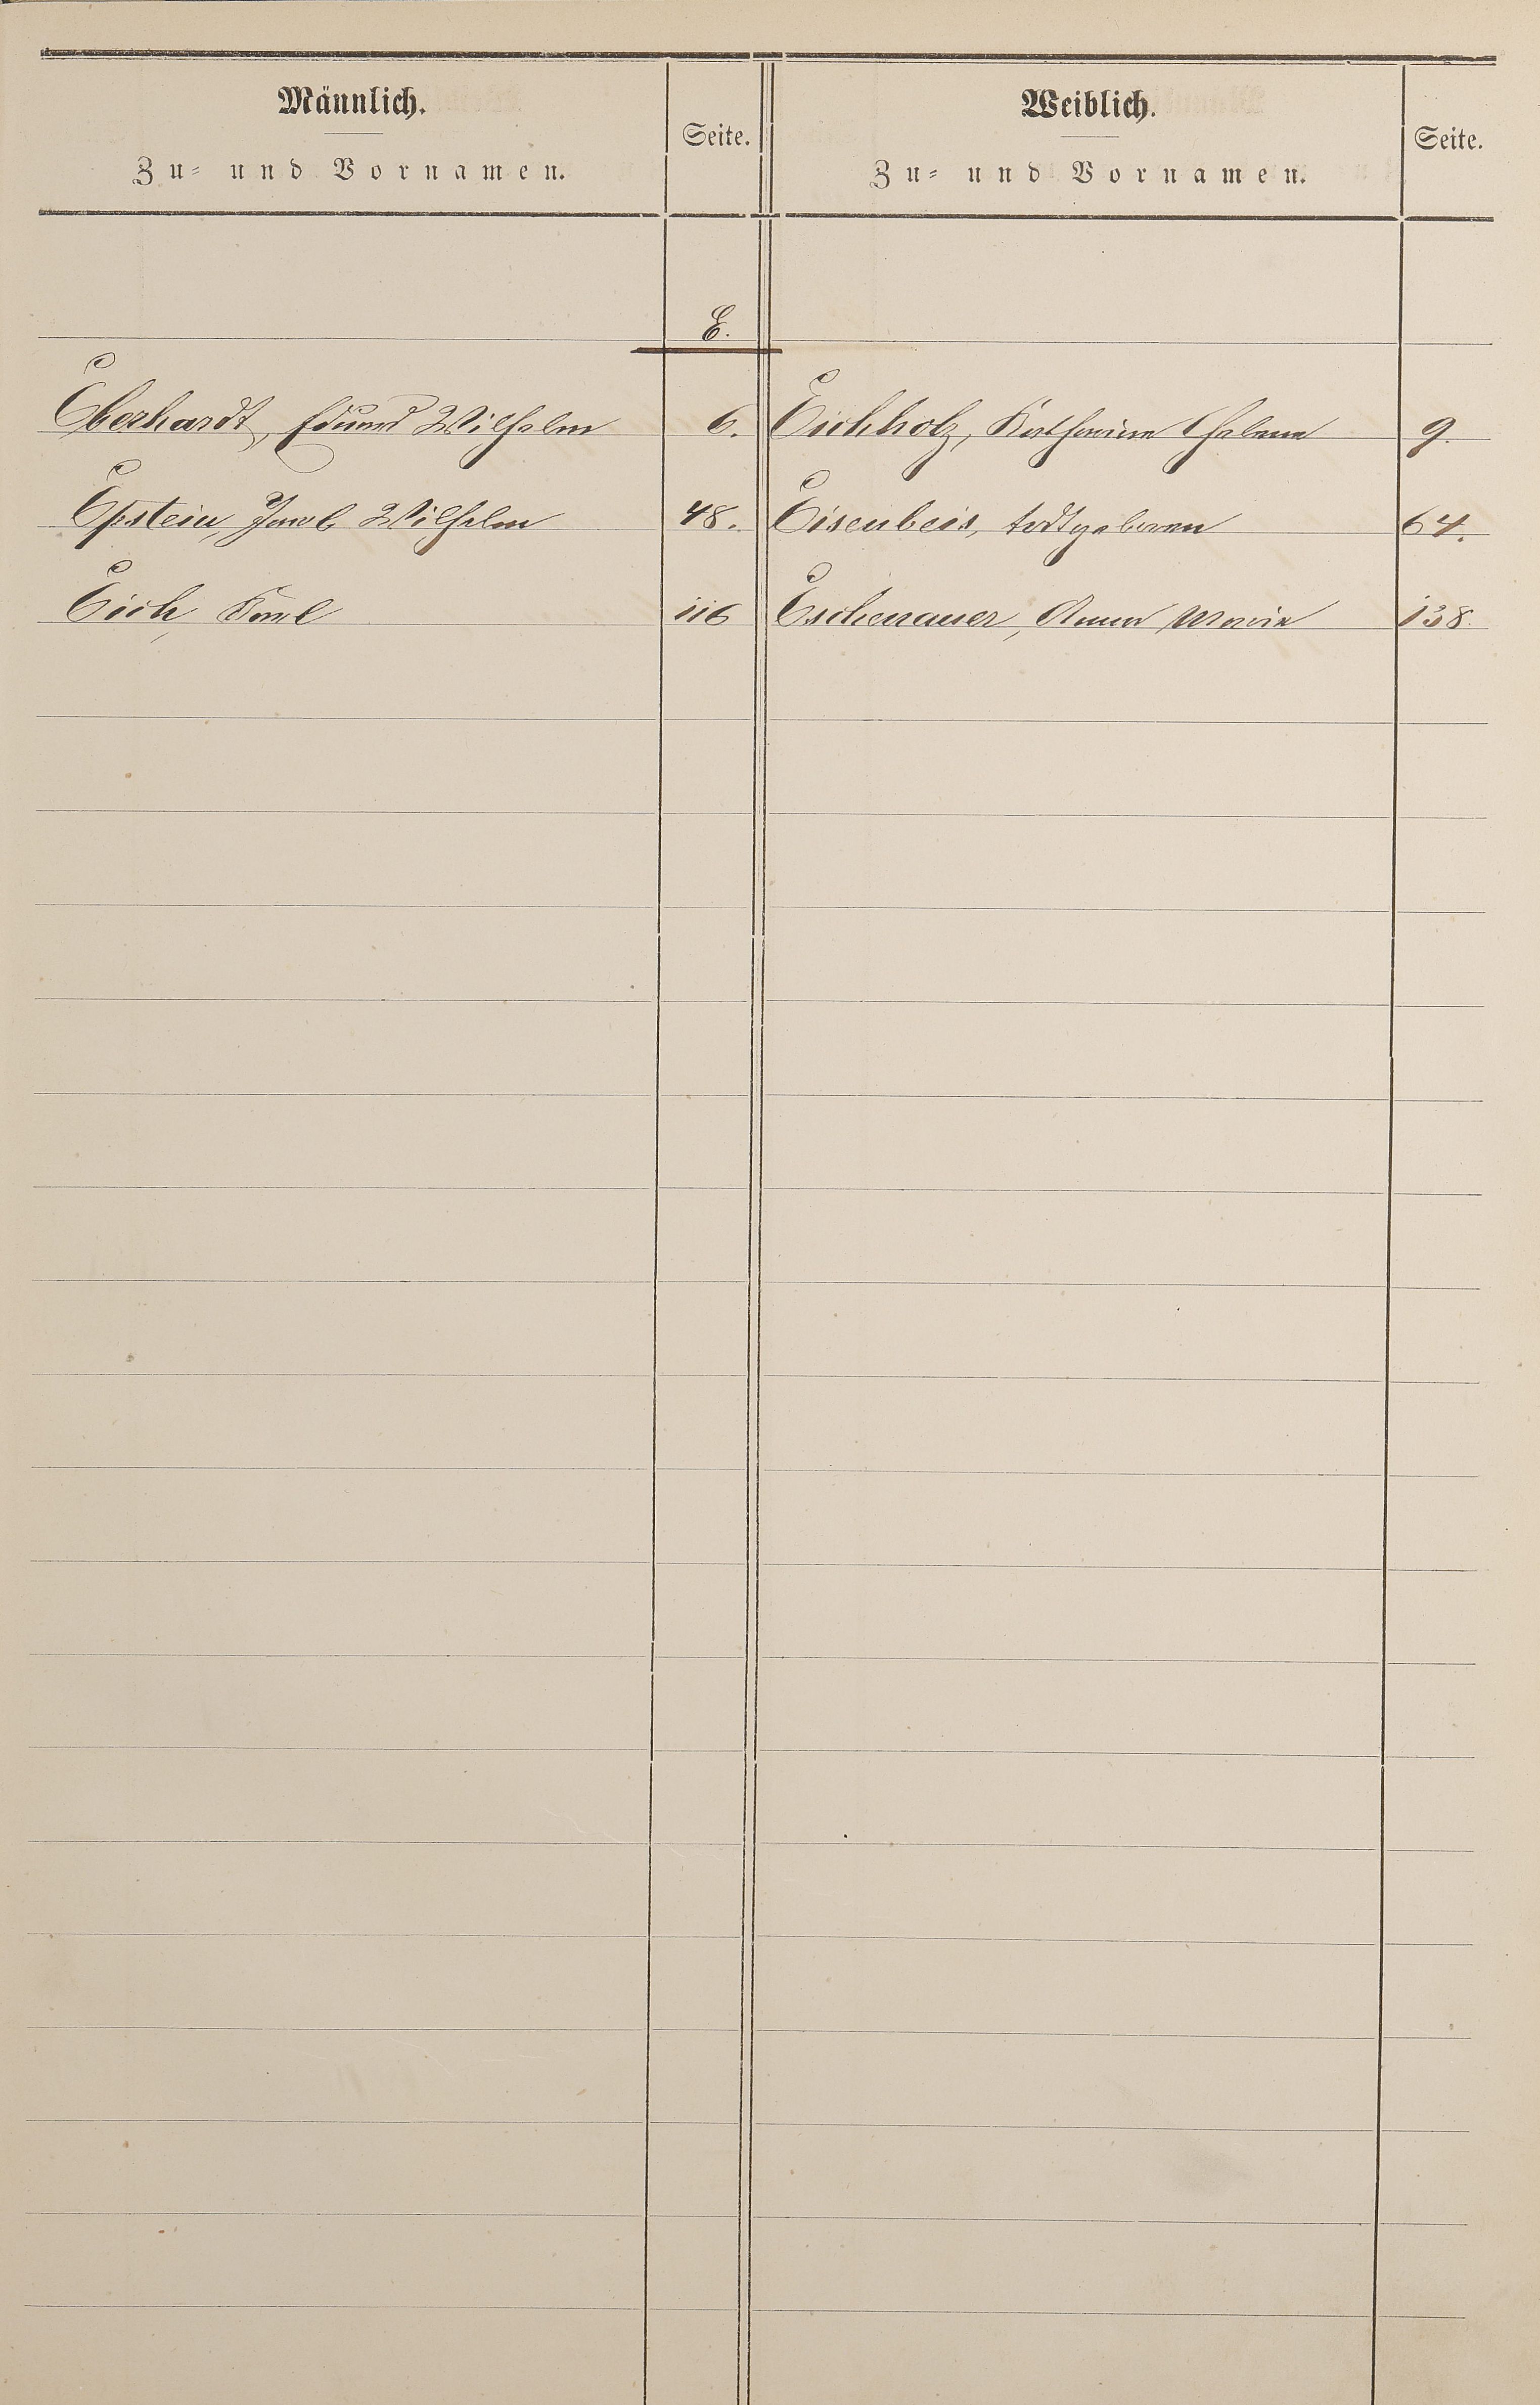 Männlich.
Zu= und Vornamen.
Seite.
Weiblich.
Zu= und Vornamen.
Seite.
E.
Eberhardt, Eduard Wilhelm 6.
Eichholz, Katharina Helena 9.
Epstein, Jacob Wilhelm 48.
Eisenbeis, todtgeboren 64.
Eich, Karl 116
Eschenauer, Anna Maria 138.